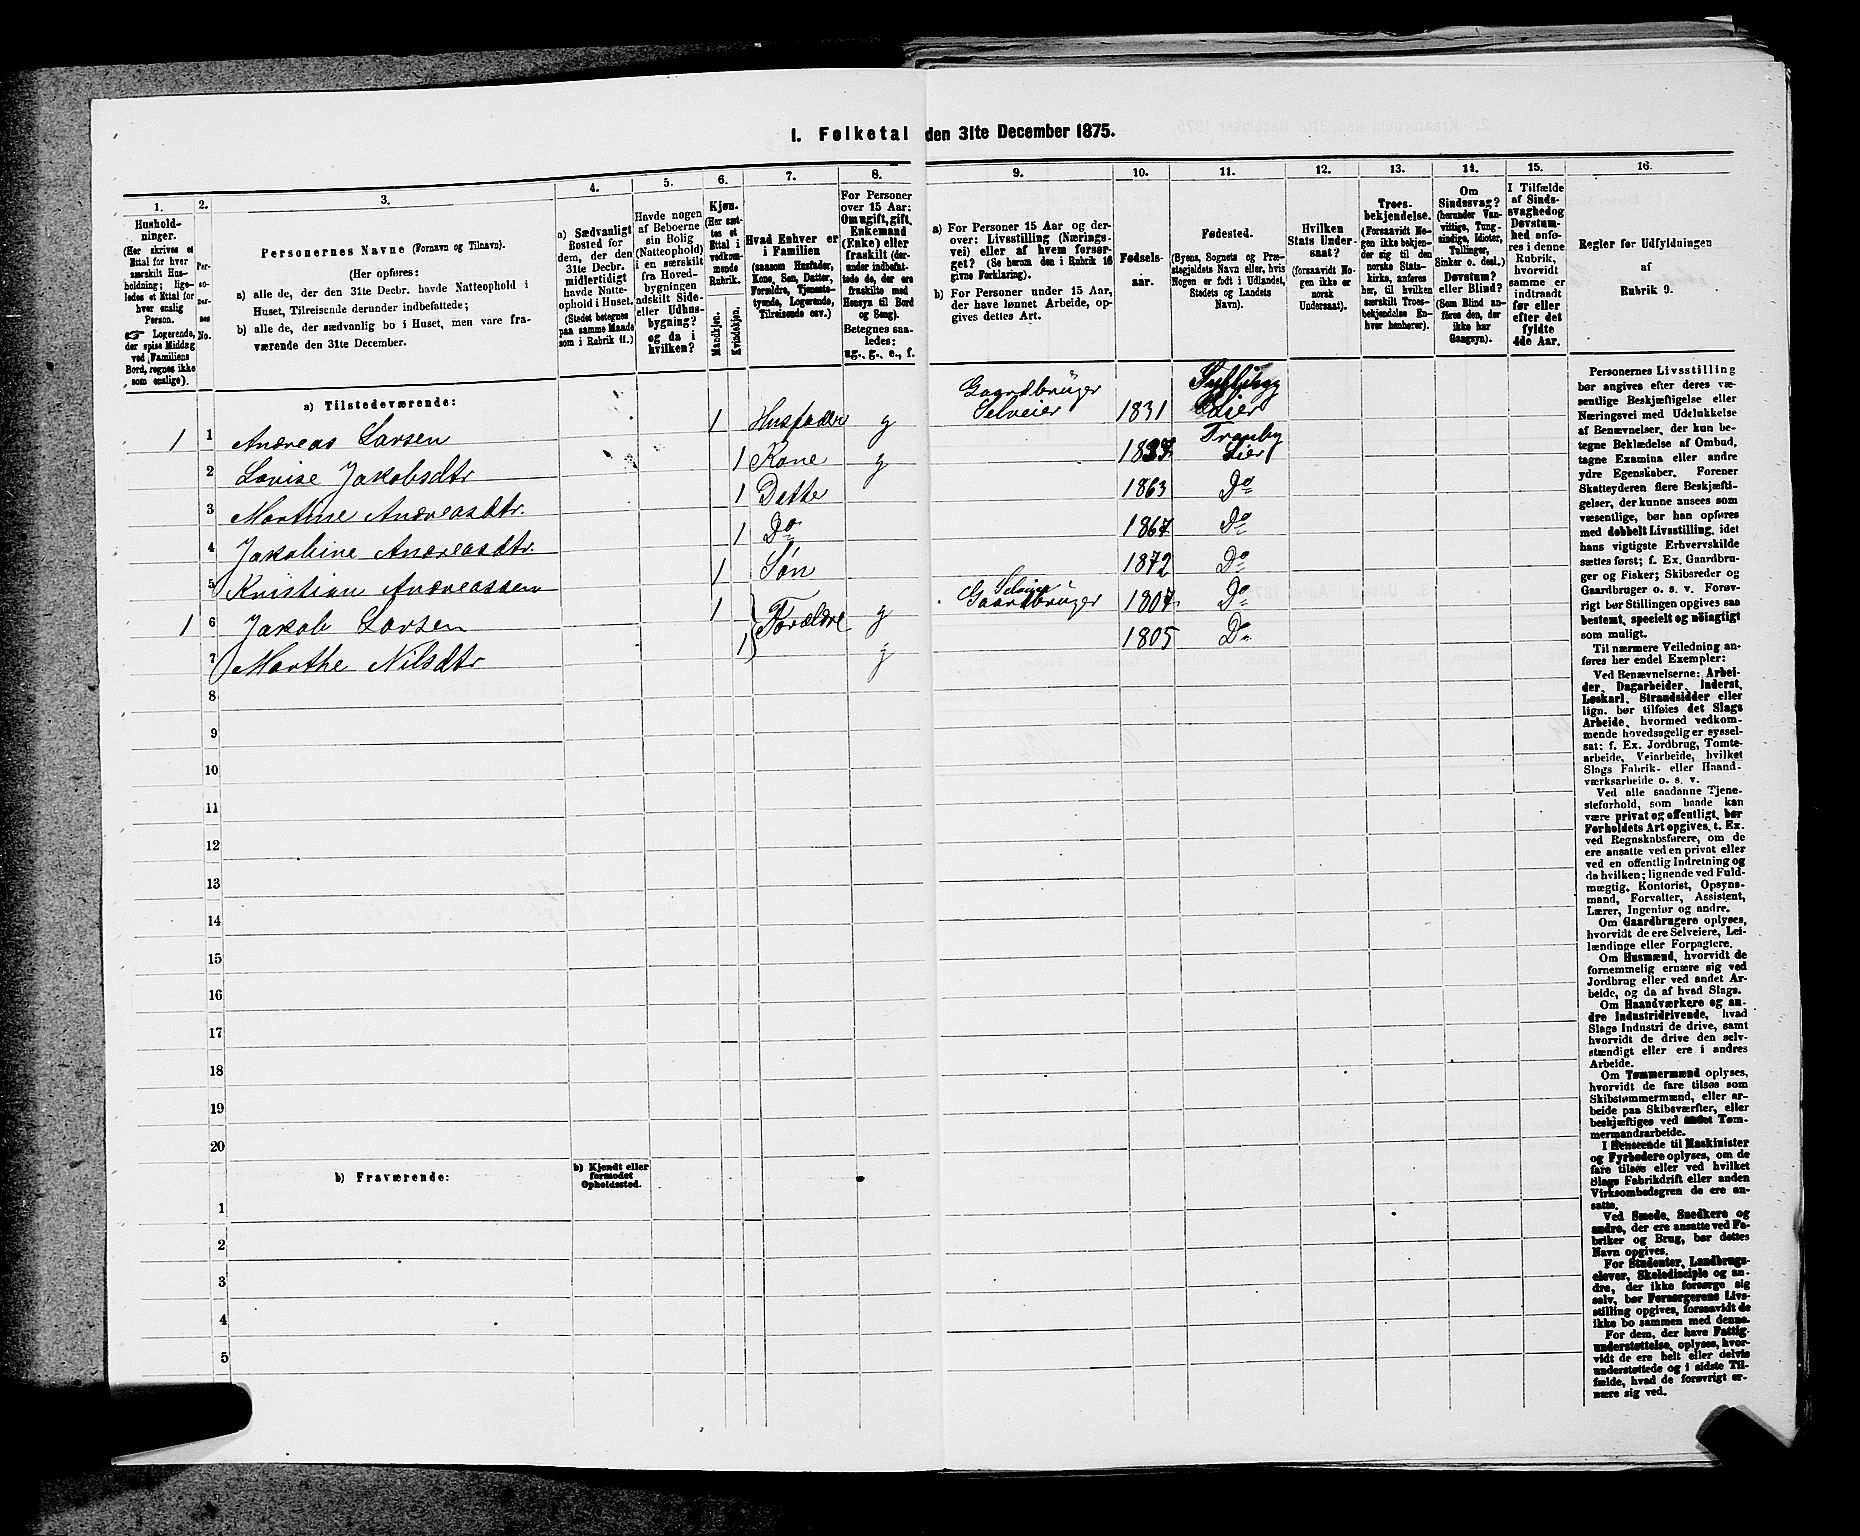 I. Folketal den 31te December 1875.
1.
Hushold-
ninger.
(Her skrives et
Ettal for hver
særskilt Hus-
holdning; lige-
ledes et Ettal for
hver enslig
Person.
☞ Logerende,
der spise Middag
ved Familiens
Bord, regnes ikke
som enslige).
2.
Per-
so-
ner-
nes
No.
3.
Personernes Navne (Fornavn og Tilnavn).
(Her opføres:
a) alle de, der den 31te Decbr. havde Natteophold i
Huset, Tilreisende derunder indbefattede;
b) alle de, der sædvanlig bo i Huset, men vare fra-
værende den 31te December.
4.
a) Sædvanligt
Bosted for
dem, der den
31te Decbr.
midlertidigt
havde Natte-
ophold i Huset.
(Stedet betegnes
paa samme Maade
som i Rubrik 11.)
5.
Havde nogen
af Beboerne
sin Bolig
(Natteophold)
i en særskilt
fra Hoved-
bygningen
adskilt Side-
eller Udhus-
bygning?
og da i
hvilken?
6.
Kjøn.
(Her sæt-
tes et
Ettal i
vedkom-
mende
Rubrik.
Mandkjøn.
Kvindekjøn.
7.
Hvad Enhver er
i Familien
(saasom Husfader,
Kone, Søn, Datter,
Forældre, Tjeneste-
tyende, Logerende,
Tilreisende osv.)
8.
For Personer
over 15 Aar:
Om ugift, gift,
Enkemand
(Enke) eller
fraskilt (der-
under indbefat-
tede de, der ere
fraskilte med
Hensyn til Bord
og Seng).
Betegnes saa-
ledes:
ug., g., e., f.
9.
a) For Personer 15 Aar og der-
over: Livsstilling (Nærings-
vei) eller af hvem forsør-
get? (Se herom den i Rubrik 16
givne Forklaring).
b) For Personer under 15 Aar,
der have lønnet Arbeide, op-
gives dettes Art.
10.
Fødsels-
aar.
11.
Fødested.
(Byens, Sognets og Præ-
stegjeldets Navn eller, hvis
Nogen er født i Udlandet,
Stedets og Landets
Navn).
12.
Hvilken
Stats Under-
saat?
(forsaavidt No-
gen ikke er
norsk
Undersaat).
13.
Troes-
bekjendelse.
(Forsaavidt No-
gen ikke bekjen-
der sig til den
norske Stats-
kirke, anføres
her, til hvilken
særskilt Troes-
bekjendelse En-
hver henhører).
14.
Om
Sindssvag?
(herunder Van-
vittige, Tung-
sindige, Idioter,
Tullinger,
Sinker o. desl.)
Døvstum?
eller Blind?
(Som Blind an-
føres den, der
ikke har
Gangsyn).
15.
I Tilfælde
af Sinds-
svaghed og
Døvstum-
hed anfø-
res i denne
Rubrik,
hvorvidt
samme er
indtraadt
før eller
efter det
fyldte
4de Aar.
16.
Regler for Udfyldningen
af
Rubrik 9.
a) Tilstedeværende:
1 1 Andreas Larsen 1 Husfader g Gaardbruger Selveier 1831 Lier
2 Lovise Jakobsdtr 1 Kone g Tranby Lier
3 Martine Andreasdtr. 1 Datte 1863 Do
4 Jakobine Andreasdtr. 1 Do 1867 Do
5 Kristian Andreassen 1 Søn 1872 Do
1 6 Jakob Larsen 1 Forældre g Selveier Gaardbruger 1807 Do
7 Marthe Nilsdtr 1 g 1805 Do
8
9
10
11
12
13
14
15
16
17
18
19
20
b) Fraværende:
b) Kjendt eller
formodet
Opholdssted.
1
2
3
4
5
Personernes Livsstilling
bør angives efter deres væ-
sentlige Beskjæftigelse eller
Næringsvei med Udelukkelse
af Benævnelser, der kun be-
tegne Beklædelse af Ombud,
tagne Examina eller andre
ydre Egenskaber. Forener
Skatteyderen flere Beskjæfti-
gelser, der kunne ansees som
væsentlige, bør han opføres
med dobbelt Livsstilling, idet
hans vigtigste Erhvervskilde
sættes først; f. Ex. Gaardbru-
ger og Fisker; Skibsreder og
Gaardbruger o. s. v. Forøv-
rigt bør Stillingen opgives saa
bestemt, specielt og nøiagtigt
som muligt.
Til nærmere Veiledning an-
føres her endel Exempler:
Ved Benævnelserne: Arbei-
der, Dagarbeider, Inderst,
Løskarl, Strandsidder eller
lign. bør tilføies det Slags
Arbeide, hvormed vedkom-
mende hovedsagelig er syssel-
sat; f. Ex. Jordbrug, Tomte-
arbeide, Veiarbeide, hvilket
Slags Fabrik- eller Haand-
værksarbeide o. s. v.
Ved alle saadanne Tjene-
steforhold, som baade kan
være privat og offentligt, bør
Forholdets Art opgives, t. Ex.
ved Regnskabsførere, om de
ere ansatte ved en privat eller
ved en offentlig Indretning og
da hvilken; lignende ved Fuld-
mægtig, Kontorist, Opsyns-
mand, Forvalter, Assistent,
Lærer, Ingeniør og andre.
Om Gaardbrugere oplyses,
hvorvidt de ere Selveiere, Lei-
lændinge eller Forpagtere.
Om Husmænd, hvorvidt de
fornemmelig ernære sig ved
Jordbrug eller ved andet Ar-
beide, og da af hvad Slags.
Om Haandværkere og an-
dre Industridrivende, hvad
Slags Industri de drive, samt
hvorvidt de drive den selv-
stændigt eller ere i andres
Arbeide.
Om Tømmermænd oplyses,
hvorvidt de fare tilsøs som
Skibstømmermænd, eller ar-
beide paa Skibsværfter, eller
beskjæftiges ved andet Tøm-
mermandsarbeide.
I Henseende til Maskinister
og Fyrbødere oplyses, om de
fare tilsøs eller ved hvilket
Slags Fabrikdrift eller anden
Virksomhedsgren de ere an-
satte.
Ved Smede, Snedkere og
andre, der ere ansatte ved Fa-
briker og Brug, bør dettes
Navn opgives.
For Studenter, Landbrugs-
elever, Skoledisciple og an-
dre, der ikke forsørge sig
selv, bør Forsørgerens Livs-
stilling opgives, forsaavidt de
ikke bo sammen med denne.
For dem, der have Fattig-
understøttelse, oplyses, hvor-
vidt de ere helt eller delvis
understøttede og i sidste Til-
fælde, hvad de forøvrigt er-
nære sig ved.